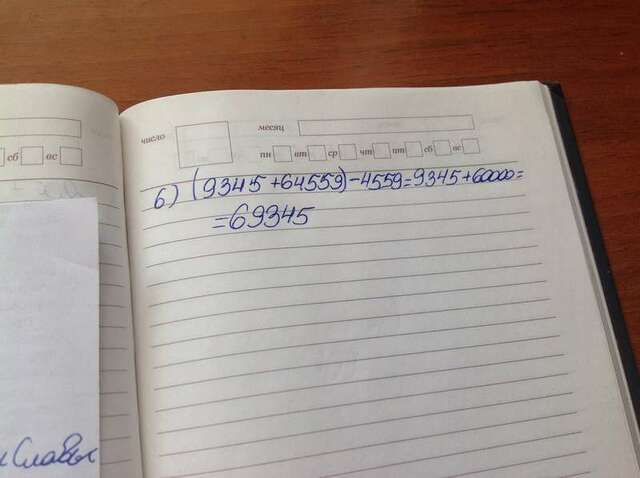 сб вс
число
месяц
пн вт ср чт пт сб вс
б) (9345+64559)-4559=9345+60000=
=69345
Славы